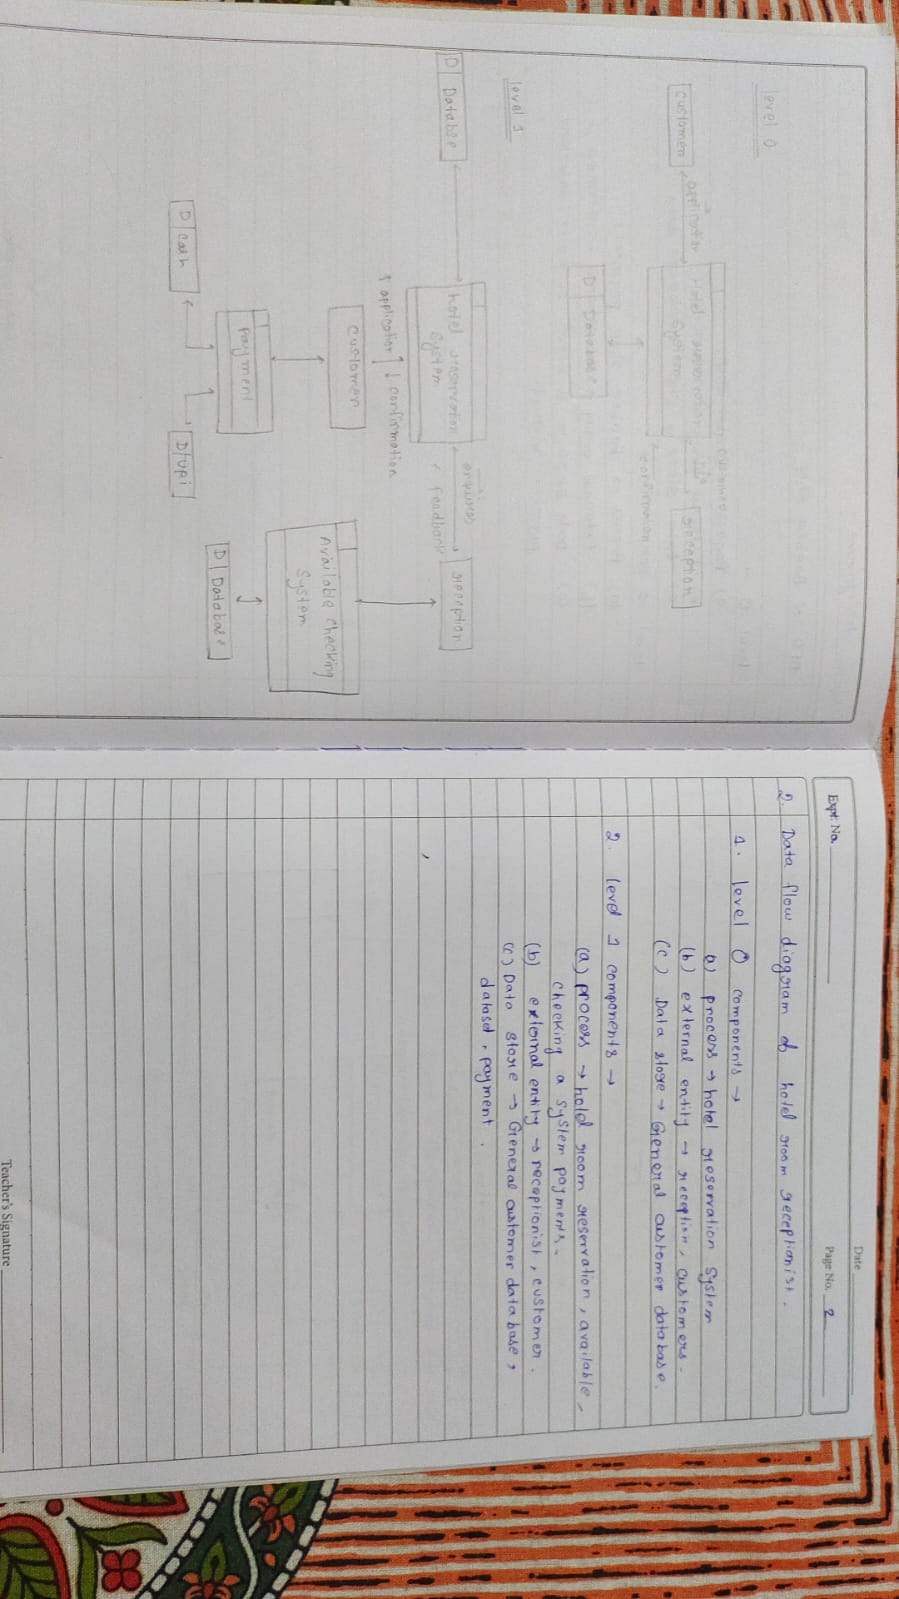 level 0
customer
application
Hotel reservation
System
info
reception
confirmation
D Database
level 1
D Databse
hotel reservation
System
enquires
feedback
reception
application
confirmation
customer
Available checking
System
payment
D Database
D cash
D upi
Date
Expt. No.
Page No. 2
2. Data flow diagram of hotel room receptionist.
1. level 0 components →
a) process → hotel reservation System
(b) external entity → reception, customers.
(c) Data store → General customer database.
2. level 1 components →
(a) process → hotel room reservation, available,
checking a system payments.
(b) external entity → receptionist, customer.
(c) Data store → General customer database,
datasd, payment.
Teacher's Signature